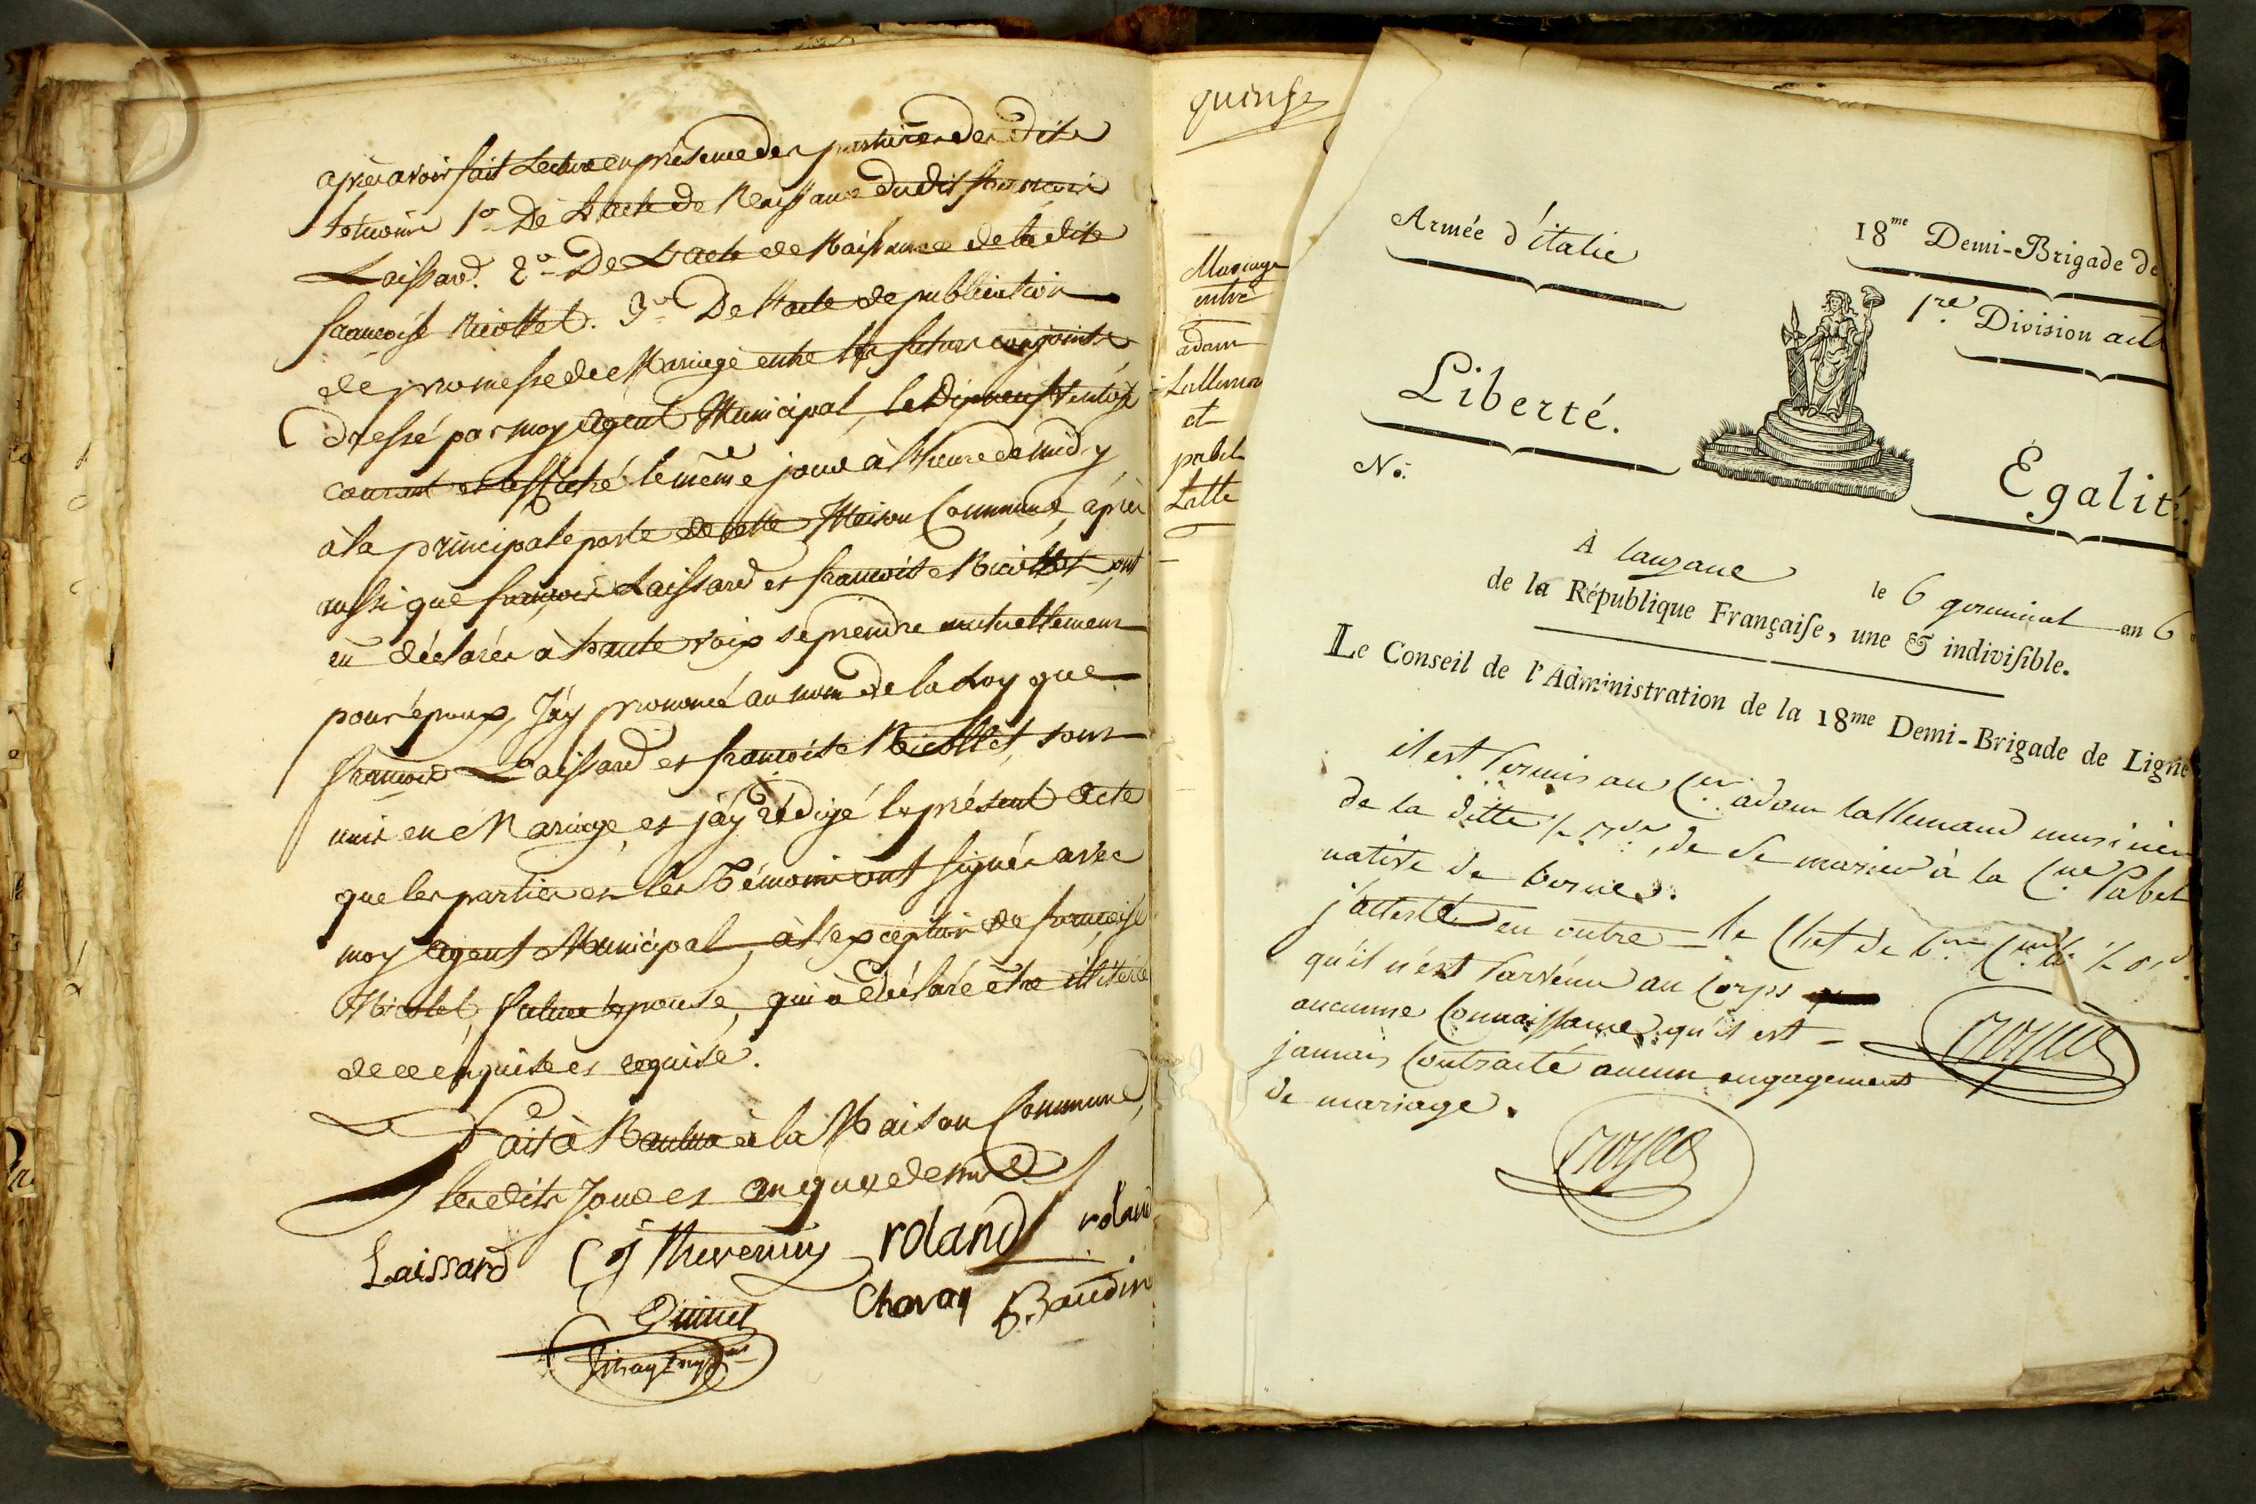 après avoir fait Lecture en présence des parties et des dits
témoins 1º De L'acte de Naissance dudit françois
Laissard. 2º De L'acte de Naissance de la dite
francoise Nicollet. 3º De L'acte de publication
de promesse de Mariage entre les futurs conjoints
dressé par moy agent Municipal, le Dixneuf Ventôse
courant et affiché le même jour à l'heure de midy
à la principale porte de cette Maison Commune, après
aussi que françois Laissard et francoise Nicollet ont
eu déclarés à haute voix se prendre mutuellement
pour époux, J'ay prononcé au nom de la Loy que
francois Laissard et francoise Nicollet, sont
unis en Mariage, et j'ay rédigé le présent acte
que les parties et les témoins ont signés avec
moy agent Municipal, à l'exception de francoise
Nicolet, future épouse, qui a déclaré être illiterée
de ce enquise et requise.
Fait à Nantua à la Maison Commune,
les dits Jour et an que dessus
Laissard C j thevenin roland roland
Chavay Baudin
quinze
Mariage
entre
adam
Lalleman
et
pabel
Latte
Armée d'italie
18me Demi-Brigade de
1re Division
Liberté.
Egalité.
No.
A lauzane le 6 germinal an 6
de la République Françaiſe, une & indiviſible.
Le Conseil de l'Administration de la 18me Demi-Brigade de Ligne
il est Permis au Cen adam lallemand musicien
de la ditte de se marier à la Cne Pabel
native de berne.
j'atteste en outre le Chef de
qu'il n'est Parvenu au Corps
aucunne Connaissance qu'il est
jamais Contracté aucun engagement
de mariage.